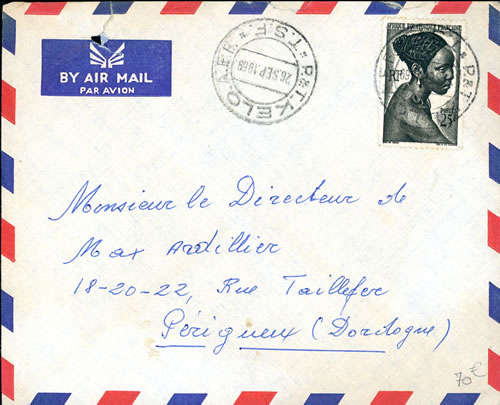 BY AIR MAIL
PAR AVION
P&T KELO A.E.F. T.S.F.
26 SEP 1959
AFRIQUE EQUATORIALE FRANÇAISE
25F
P&T
Monsieur le Directeur de
Max Ardillier
18-20-22, Rue Taillefer
Périgueux (Dordogne)
70€